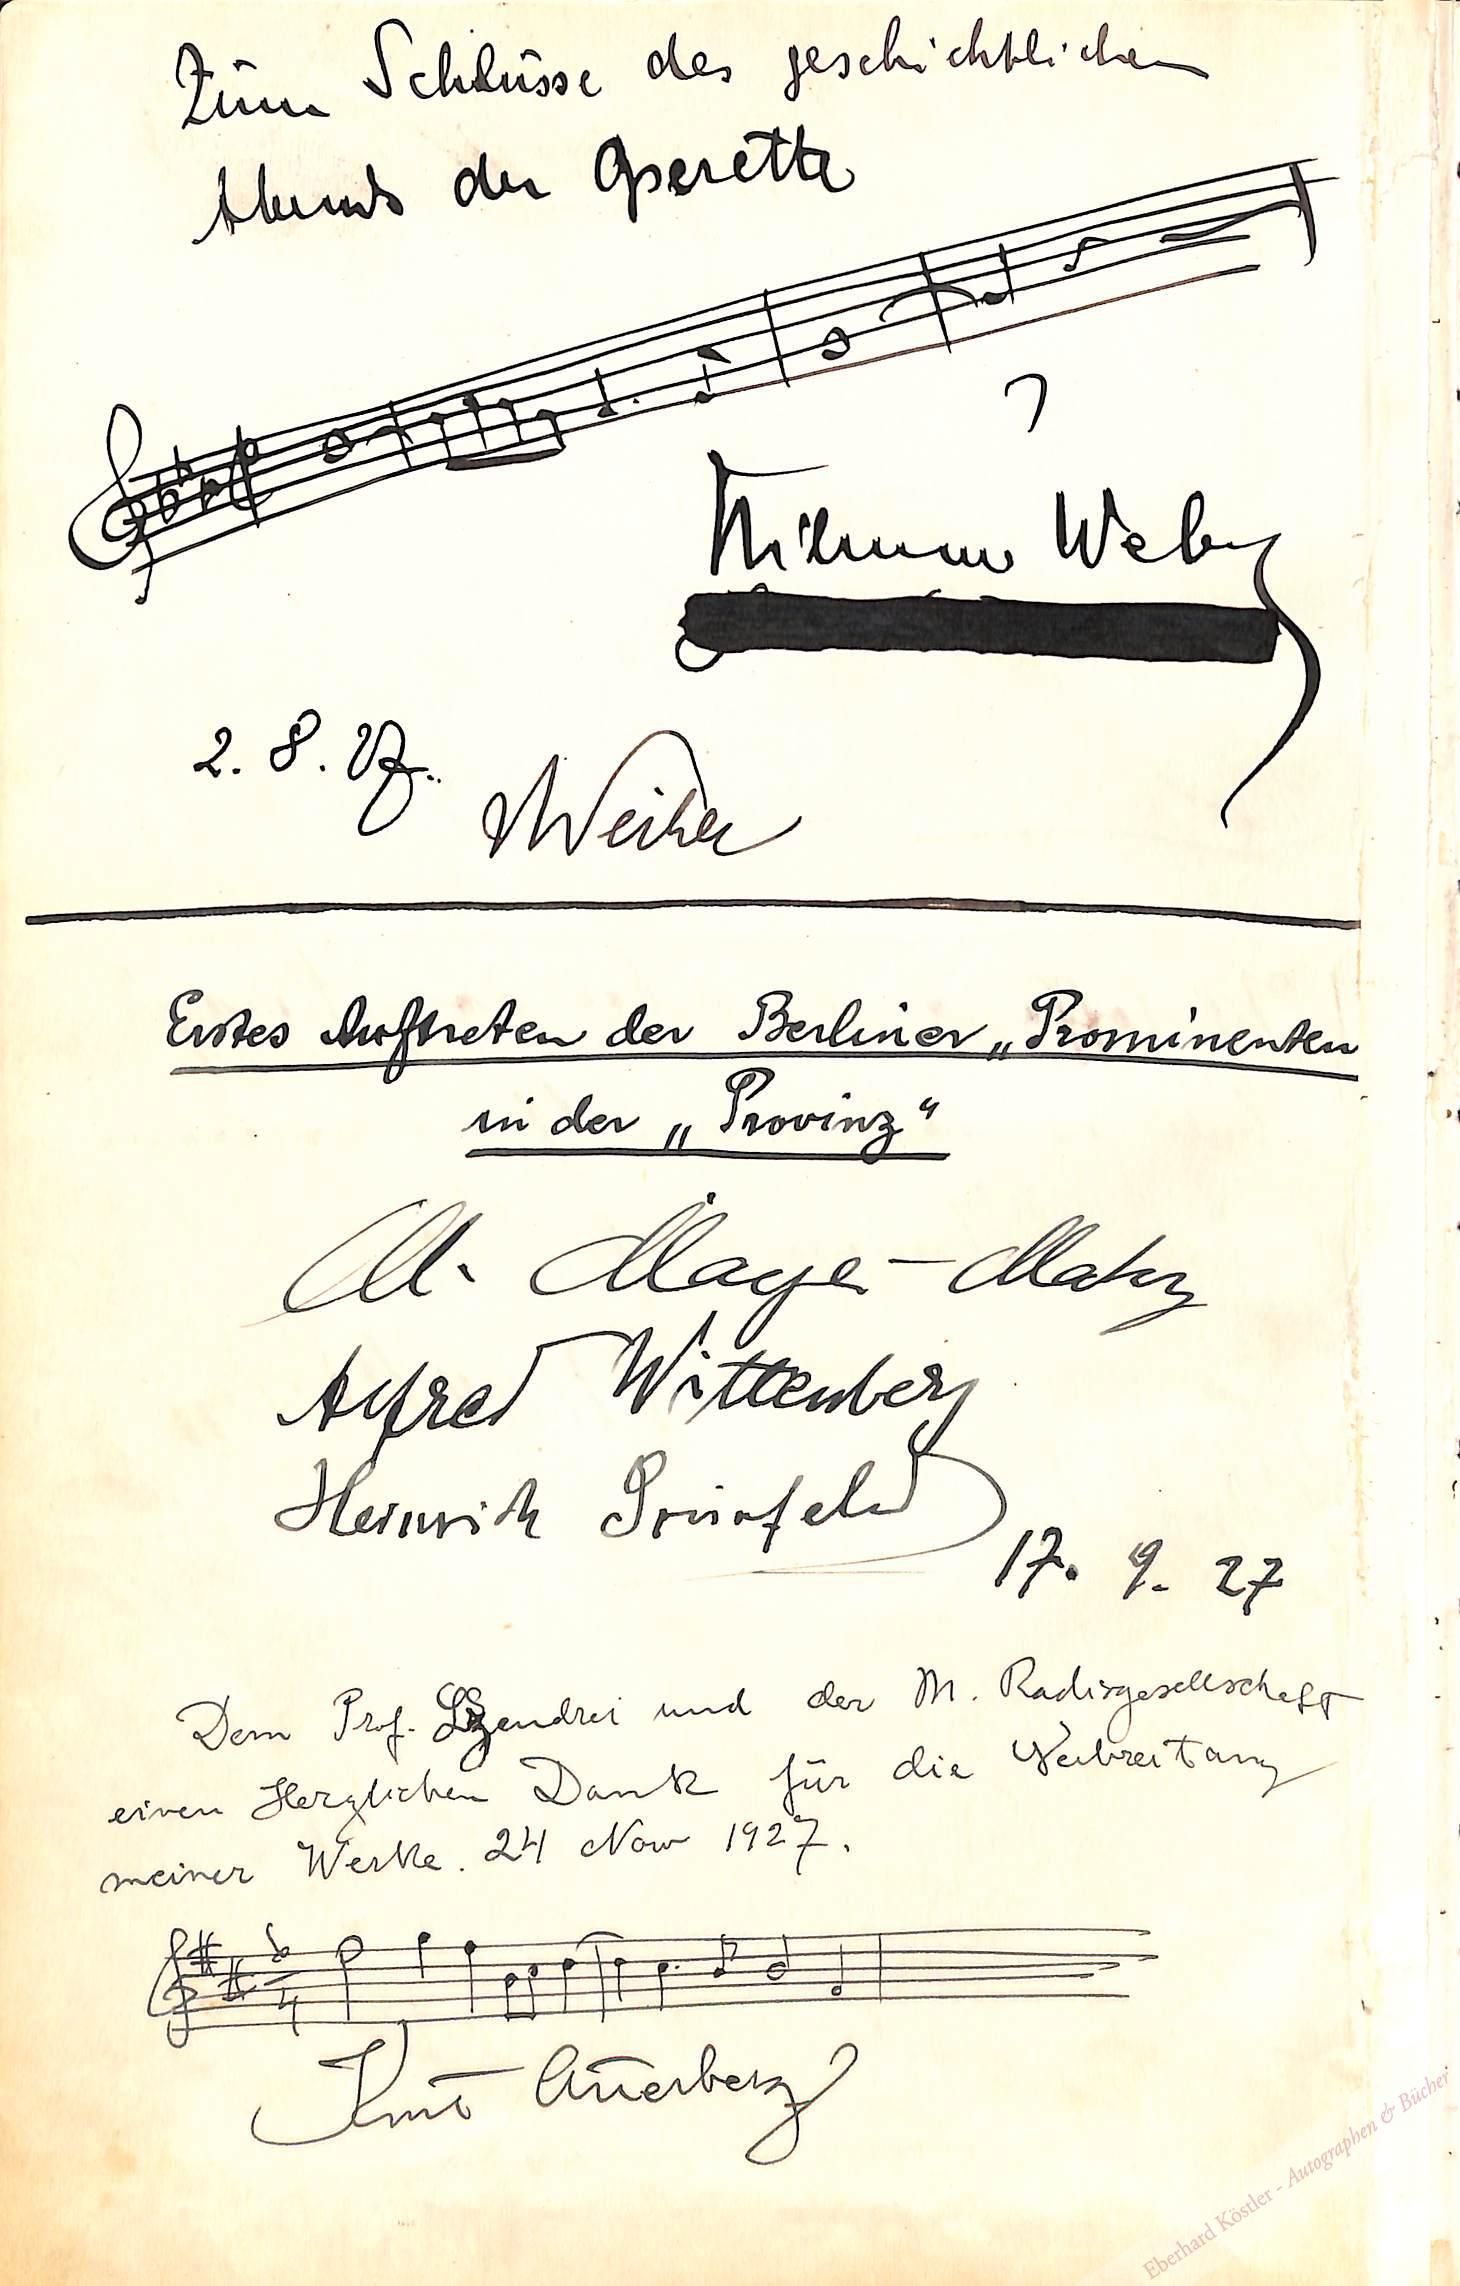 Zum Schlusse des geschichtlichen
Abends der Operette
Weber
2. 8. 27.
Erstes Auftreten der Berliner „Prominenten
in der „Provinz“
M. Mayer-Mahr
Alfred Wittenberg
Heinrich Grünfeld
17. 9. 27
Dem Prof. Szendrei und der M. Radiogesellschaft
einen Herzlichen Dank für die Verbreitung
meiner Werke. 24 Nov 1927.
4
Kurt Atterberg
Eberhard Köstler - Autographen & Bücher